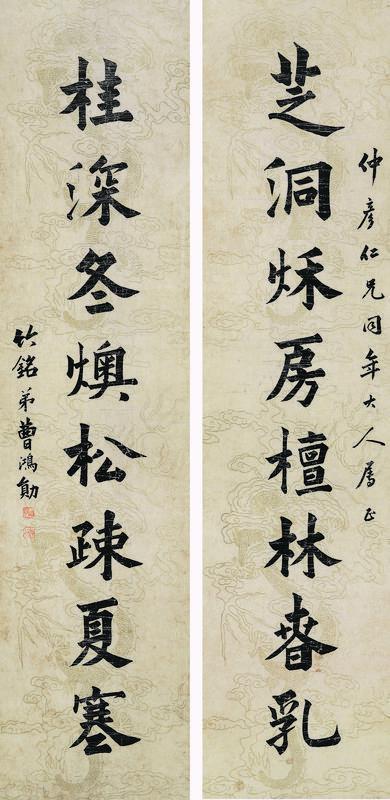 仲彥仁兄同年大人属正
芝洞秌房檀林春乳
桂深冬燠松疎夏寒
竹銘弟曹鴻勛